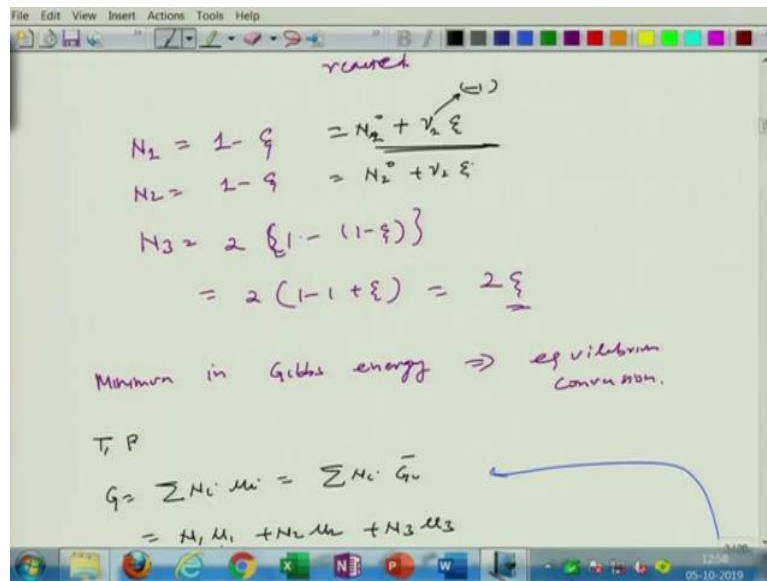 File Edit View Insert Actions Tools Help
B I
N₁ = 1 - ξ = N₂° + ν₂ ξ (-1)
N₂ = 1 - ξ = N₂° + ν₂ ξ
N₃ = 2 {1 - (1 - ξ)}
= 2 (1 - 1 + ξ) = 2ξ
Minimum in Gibbs energy ⇒ equilibrium
conversion.
T, P
G = Σ Nᵢ μᵢ = Σ Nᵢ Ḡᵢ
= N₁ μ₁ + N₂ μ₂ + N₃ μ₃
12:58
05-10-2019